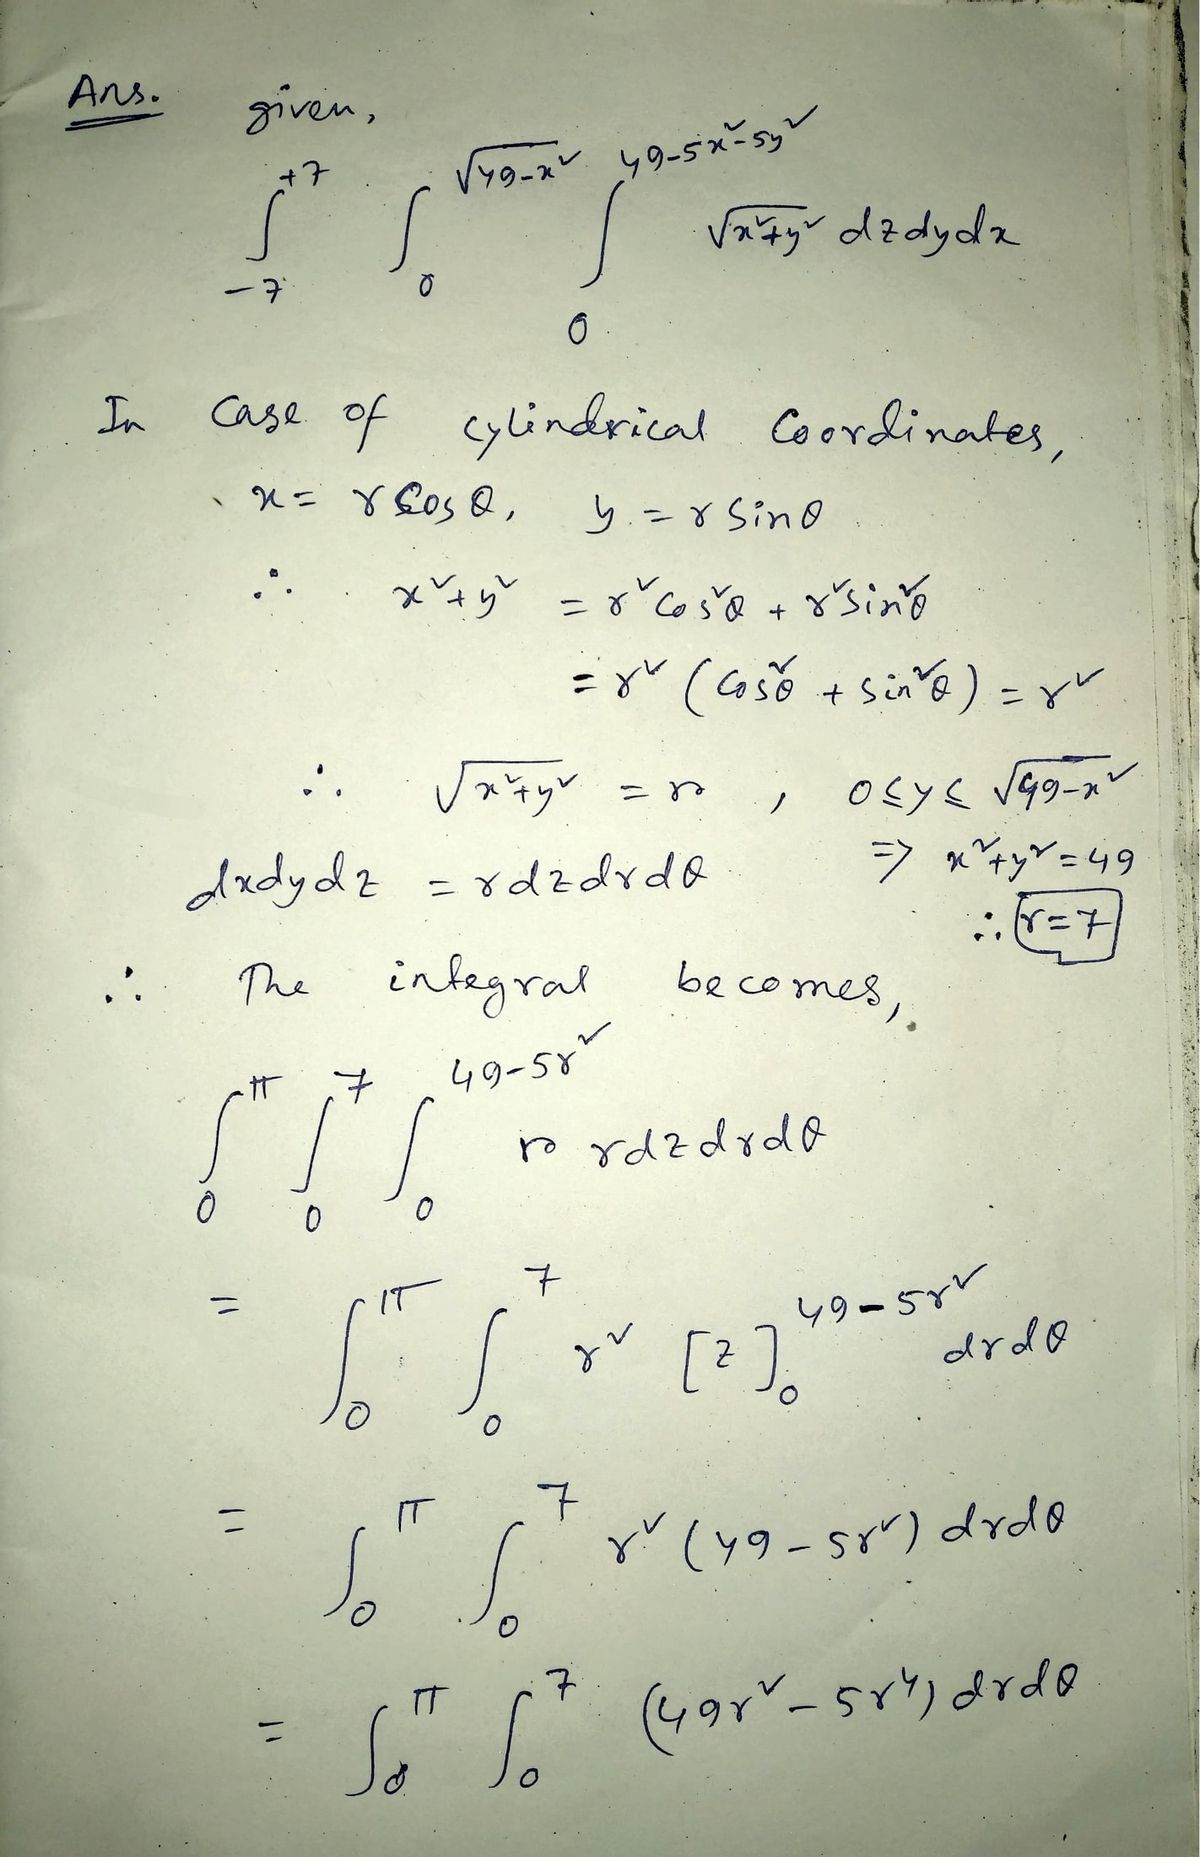 Ans. given,
∫₋₇⁺⁷ ∫₀^√(49-x²) ∫₀^(49-5x²-5y²) √(x²+y²) dz dy dx
In Case of cylindrical Coordinates,
x = r Cos θ, y = r Sin θ
∴ x²+y² = r² Cos²θ + r² Sin²θ
= r² (Cos²θ + Sin²θ) = r²
∴ √(x²+y²) = r , 0 ≤ y ≤ √(49-x²)
⇒ x²+y² = 49
dxdydz = r dz dr dθ
∴ r=7
∴ The integral becomes,
∫₀^π ∫₀^7 ∫₀^(49-5r²) r r dz dr dθ
= ∫₀^π ∫₀^7 r² [z]₀^(49-5r²) dr dθ
= ∫₀^π ∫₀^7 r² (49-5r²) dr dθ
= ∫₀^π ∫₀^7 (49r² - 5r⁴) dr dθ